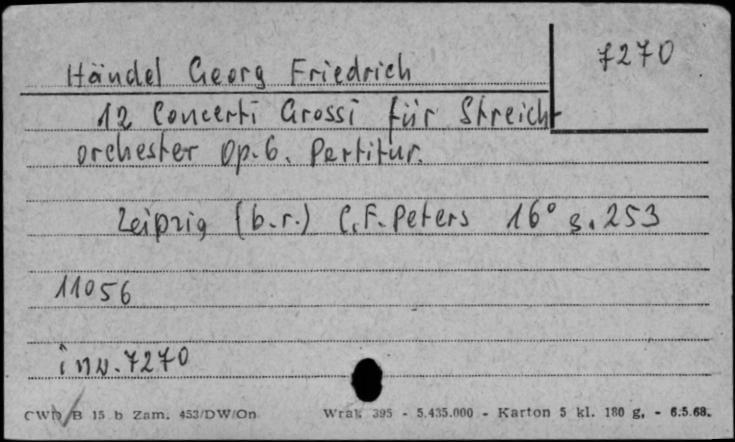 7270
Händel Georg Friedrich
12 Concerti Grossi für Streich-
orchester Op.6. Partitur.
Leipzig (b.r.) C.F. Peters 16° s. 253
11056
inw. 7270
CWD B 15 b Zam. 453/DW/On Wrak 395 - 5.435.000 - Karton 5 kl. 180 g. - 6.5.68.